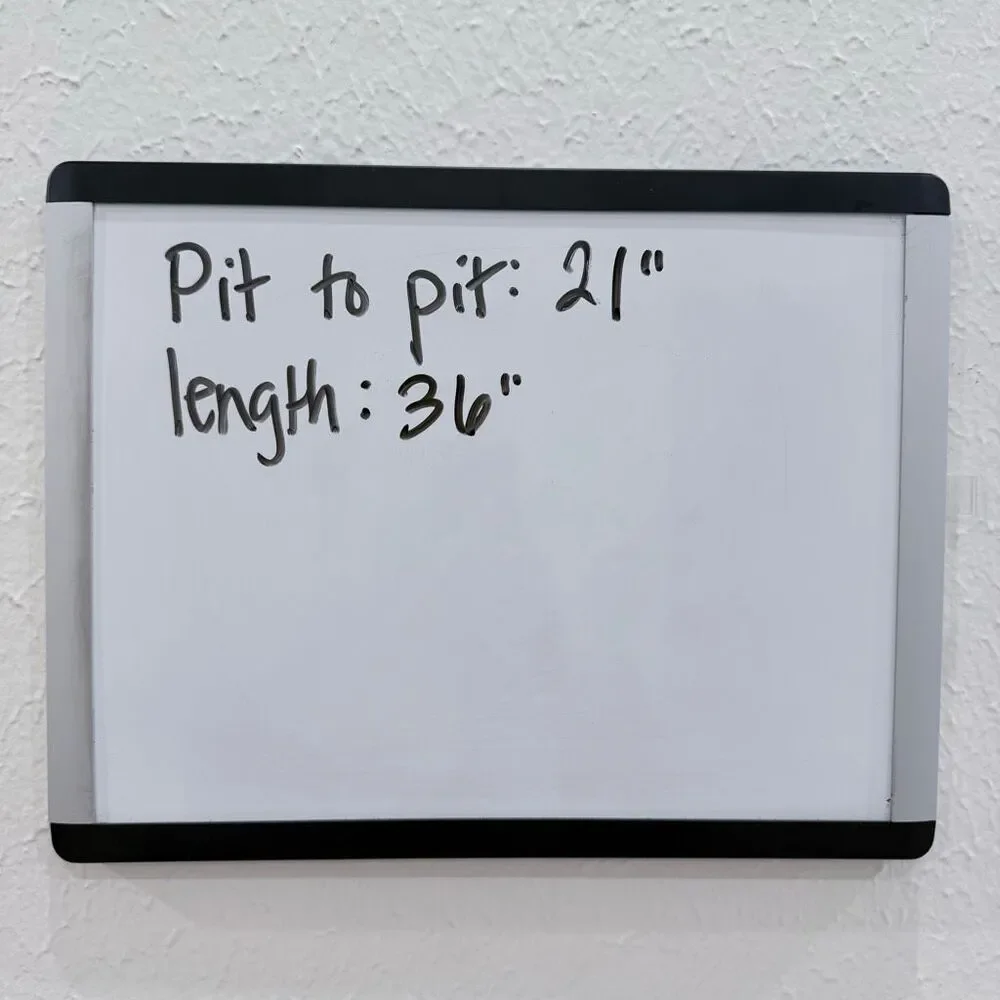 Pit to pit: 21"
length: 36"